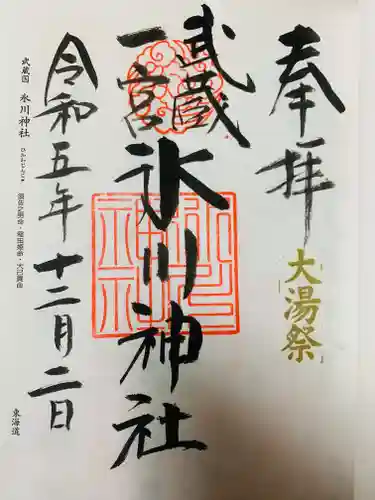 奉拝
大湯祭
武蔵
一宮
氷川神社
令和五年十二月二日
武蔵国 氷川神社
ひかわじんじゃ
東海道